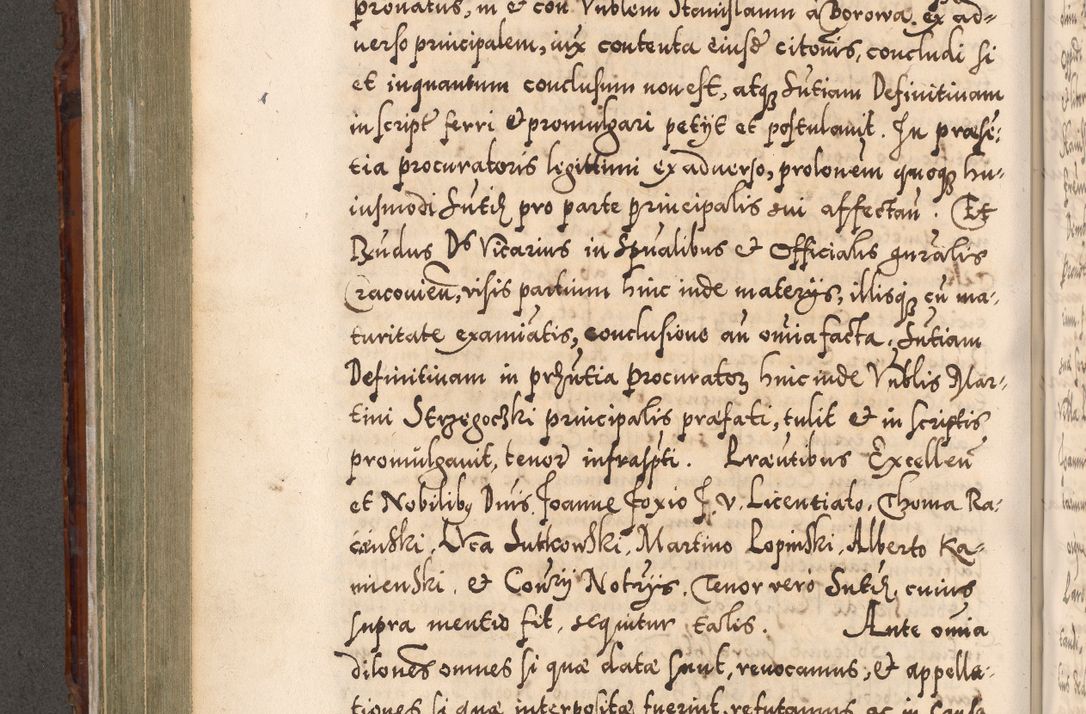 pronatus, in et con Vnblem Stanislaum a Borowa ex ad=
uerso principalem, iux contenta eiusd citonis, concludi si
et inquantum conclusum non est, atq Sntiam Definitiuam
in script ferri et promulgari petyt et postulauit. In præse:
tia procuratoris legittimi ex aduerso, prolonem quoq hu=
iusmodi Sntiæ pro parte principalis sui affectan. Et
Rndus Ds Vicarius in Spualibus et Officialis gnralis
Cracouien, visis partium hinc inde materys, illisq cu ma=
turitate examinatis, conclusione an omnia facta. Sntiam
Definitiuam in prntia Procurator hinc inde Vnblis Mar=
tini Strzegoczki principalis præfati, tulit et in scriptis
promulgauit, tenor infrascpti. Præntibus Excellen
et Nobilib Dnis Joanne Foxio J. V. Licentiato, Thoma Ra=
czenski, Luca Lutkowski, Martino Lopinski, Alberto Ka=
mienski, et Consry Notrys. Tenor vero Sntiæ, cuius
supra mentio fit, sequitur talis. Ante omnia
dilones omnes si quæ datæ sunt, reuocamus, et appella=
tiones si quæ interpositæ fuerint, refutamus ac in causa